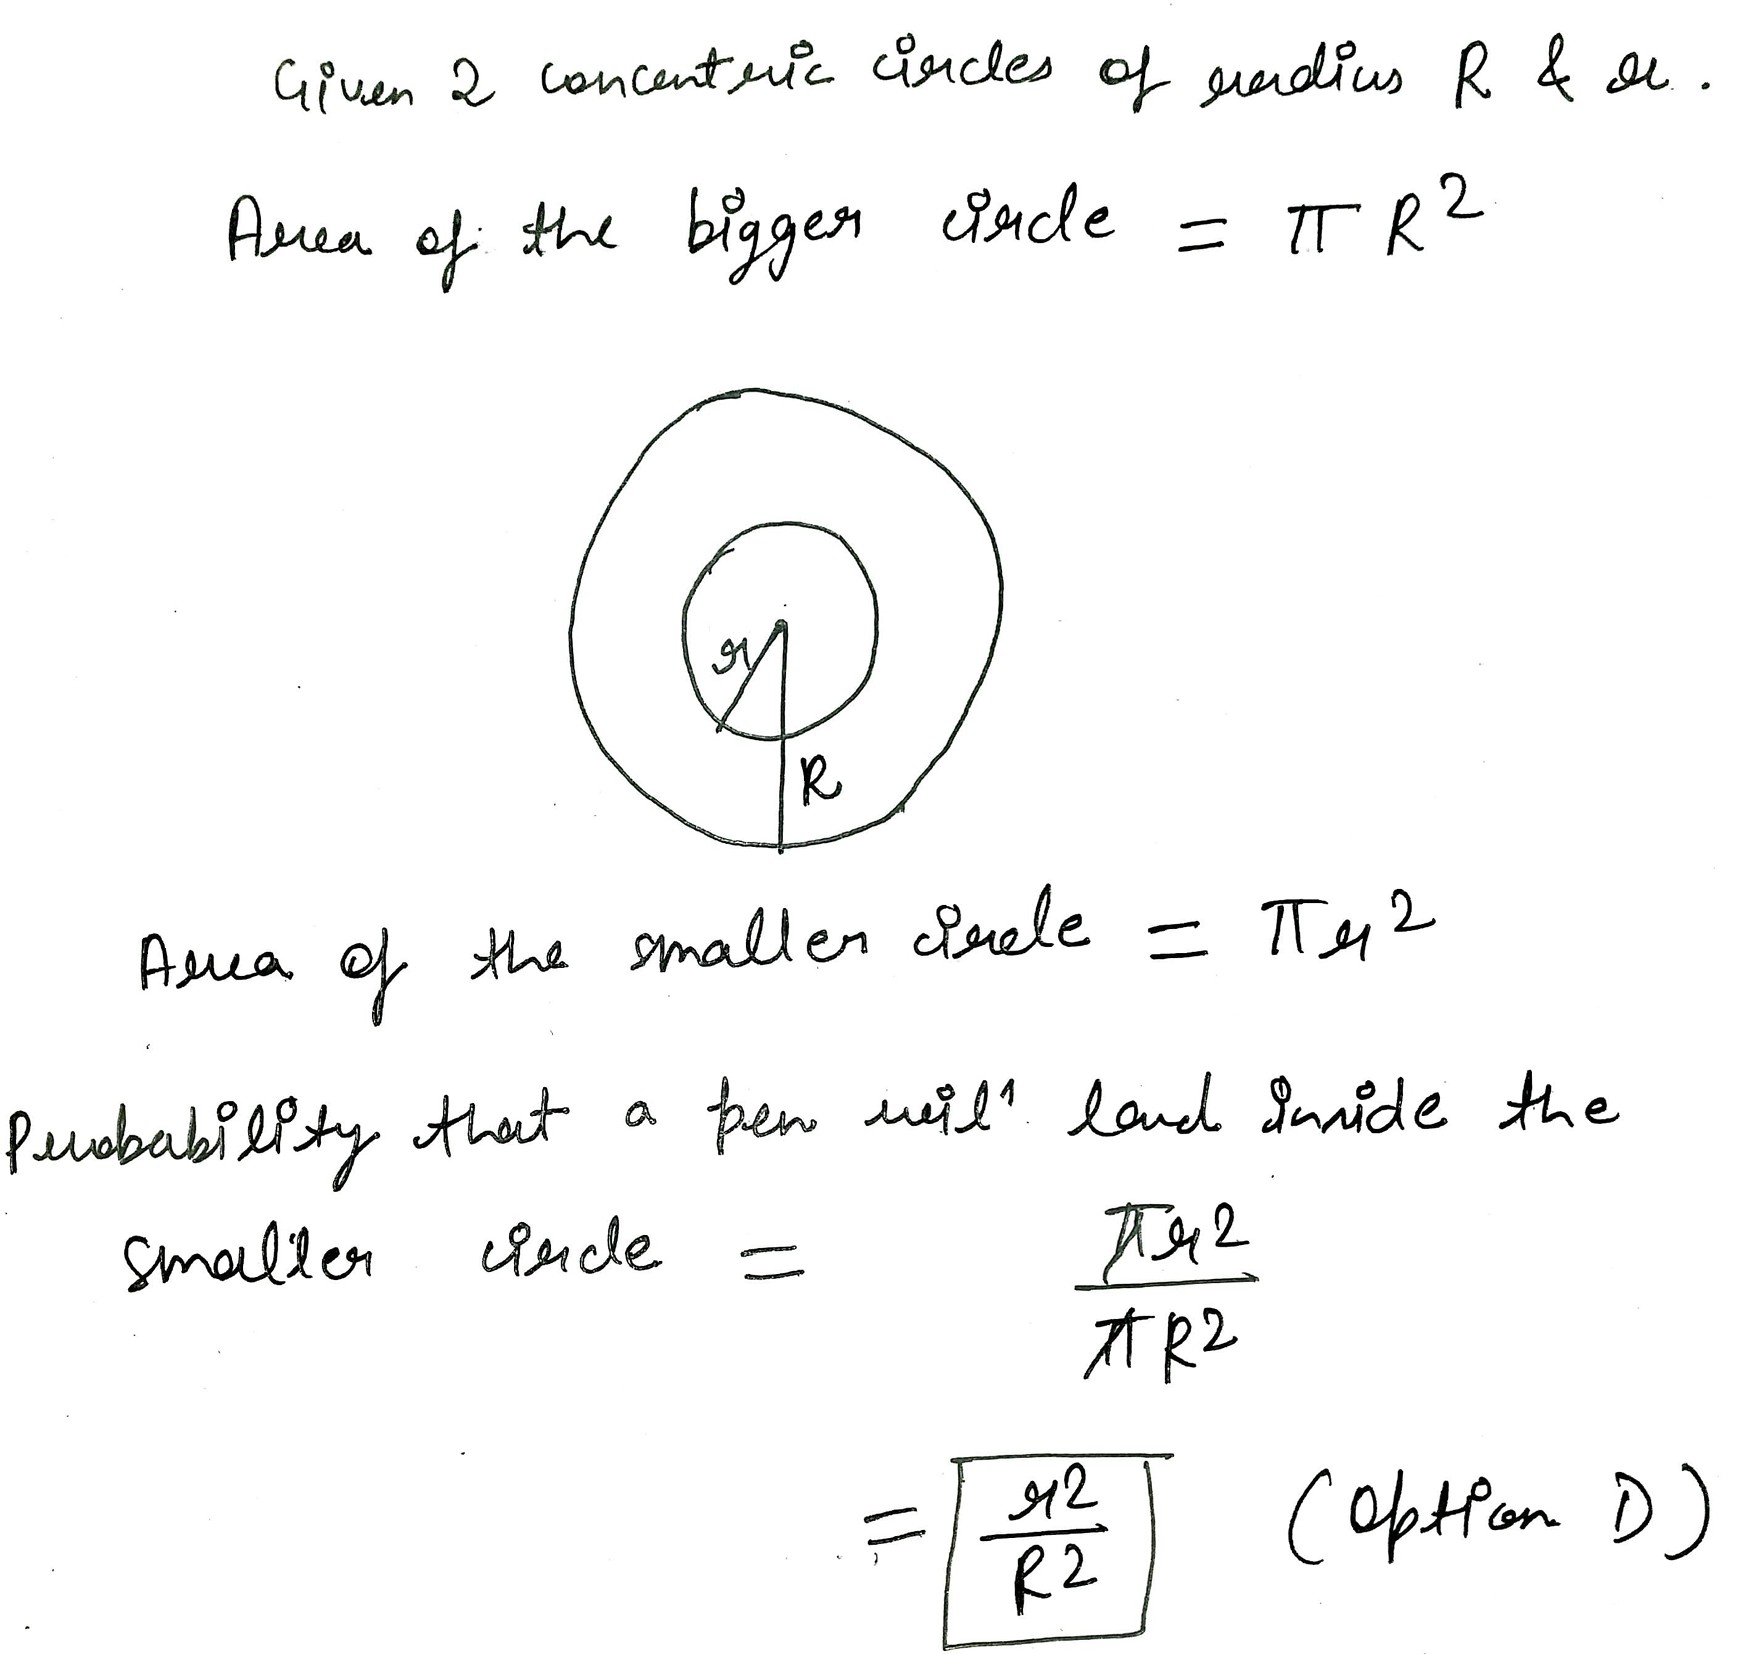 Given 2 concentric circles of radius R & r.
Area of the bigger circle = π R²
r
R
Area of the smaller circle = πr²
Probability that a pen will land inside the
smaller circle = πr²
πR²
= r²
R² (option D)